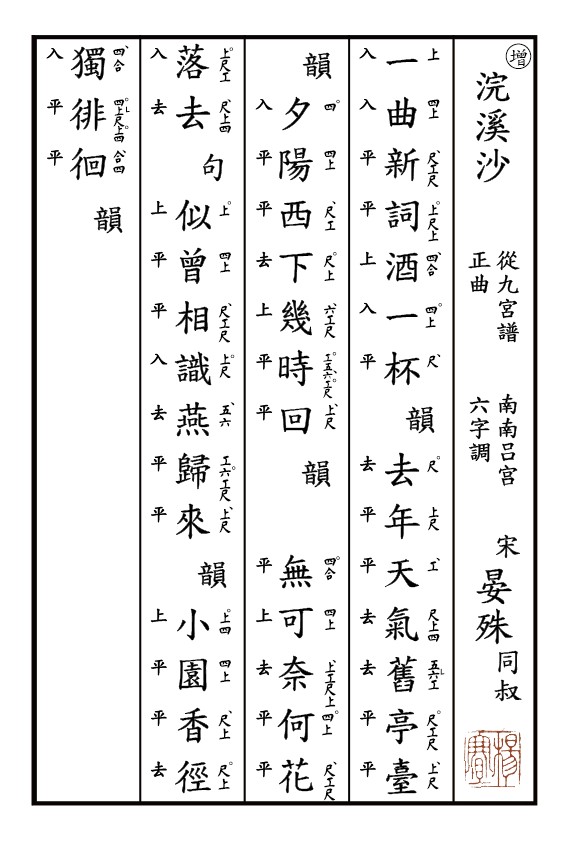 增 浣溪沙
從九宮譜
正曲
南南呂宮
六字調
宋 晏殊 同叔
上 四上 尺工尺 上尺上 四合 四上 尺 尺 上尺 工 尺上四 五六工 尺工尺 上尺
一曲新詞酒一杯 韻 去年天氣舊亭臺
入 入 平 平 上 入 平 去 平 平 去 去 平 平
四 四上 尺工 尺上 六工尺 工五六工尺 上尺 四合 四上 上工尺上 四上 尺工尺
韻 夕陽西下幾時回 韻 無可奈何花
入 平 平 去 上 平 平 平 上 去 平 平
上尺工 尺上四 上 四上 尺工尺 上尺 五六 工六工尺 上尺 上四 四上 尺上 尺上
落去 句 似曾相識燕歸來 韻 小園香徑
入 去 上 平 平 入 去 平 平 上 平 平 去
四合 四上尺上四 合四
獨徘徊 韻
入 平 平